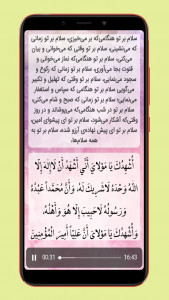 سلام بر تو هنگامی‌که بر می‌خیزی، سلام بر تو زمانی
که می‌نشینی، سلام بر تو وقتی که می‌خوانی و بیان
می‌کنی، سلام بر تو هنگامی‌که نماز می‌خوانی و
قنوت بجا می‌آوری، سلام بر تو زمانی که رکوع و
سجود می‌نمایی، سلام بر تو وقتی که تهلیل و تکبیر
می‌گویی، سلام بر تو هنگامی که سپاس و استغفار
می‌نمایی؛ سلام بر تو زمانی که صبح و شام می‌کنی،
سلام بر تو در شب هنگامی‌که می‌پوشاند و در روز
وقتی که آشکار می‌شود، سلام بر تو ای پیشوای امین،
سلام بر تو ای پیش نهاده‌ی آرزو شده، سلام بر تو به
همه سلام‌ها،
أُشْهِدُكَ يَا مَوْلَايَ أَنِّي أَشْهَدُ أَنْ لَاإِلَهَ إِلَّا
اللَّهُ وَحْدَهُ لَاشَرِيكَ لَهُ، وَأَنَّ مُحَمَّداً عَبْدُهُ
وَرَسُولُهُ لَاحَبِيبَ إِلَّا هُوَ وَأَهْلُهُ،
وَأُشْهِدُكَ يَا مَوْلَايَ أَنَّ عَلِيّاً أَمِيرَ الْمُؤْمِنِينَ
00:31 16:43